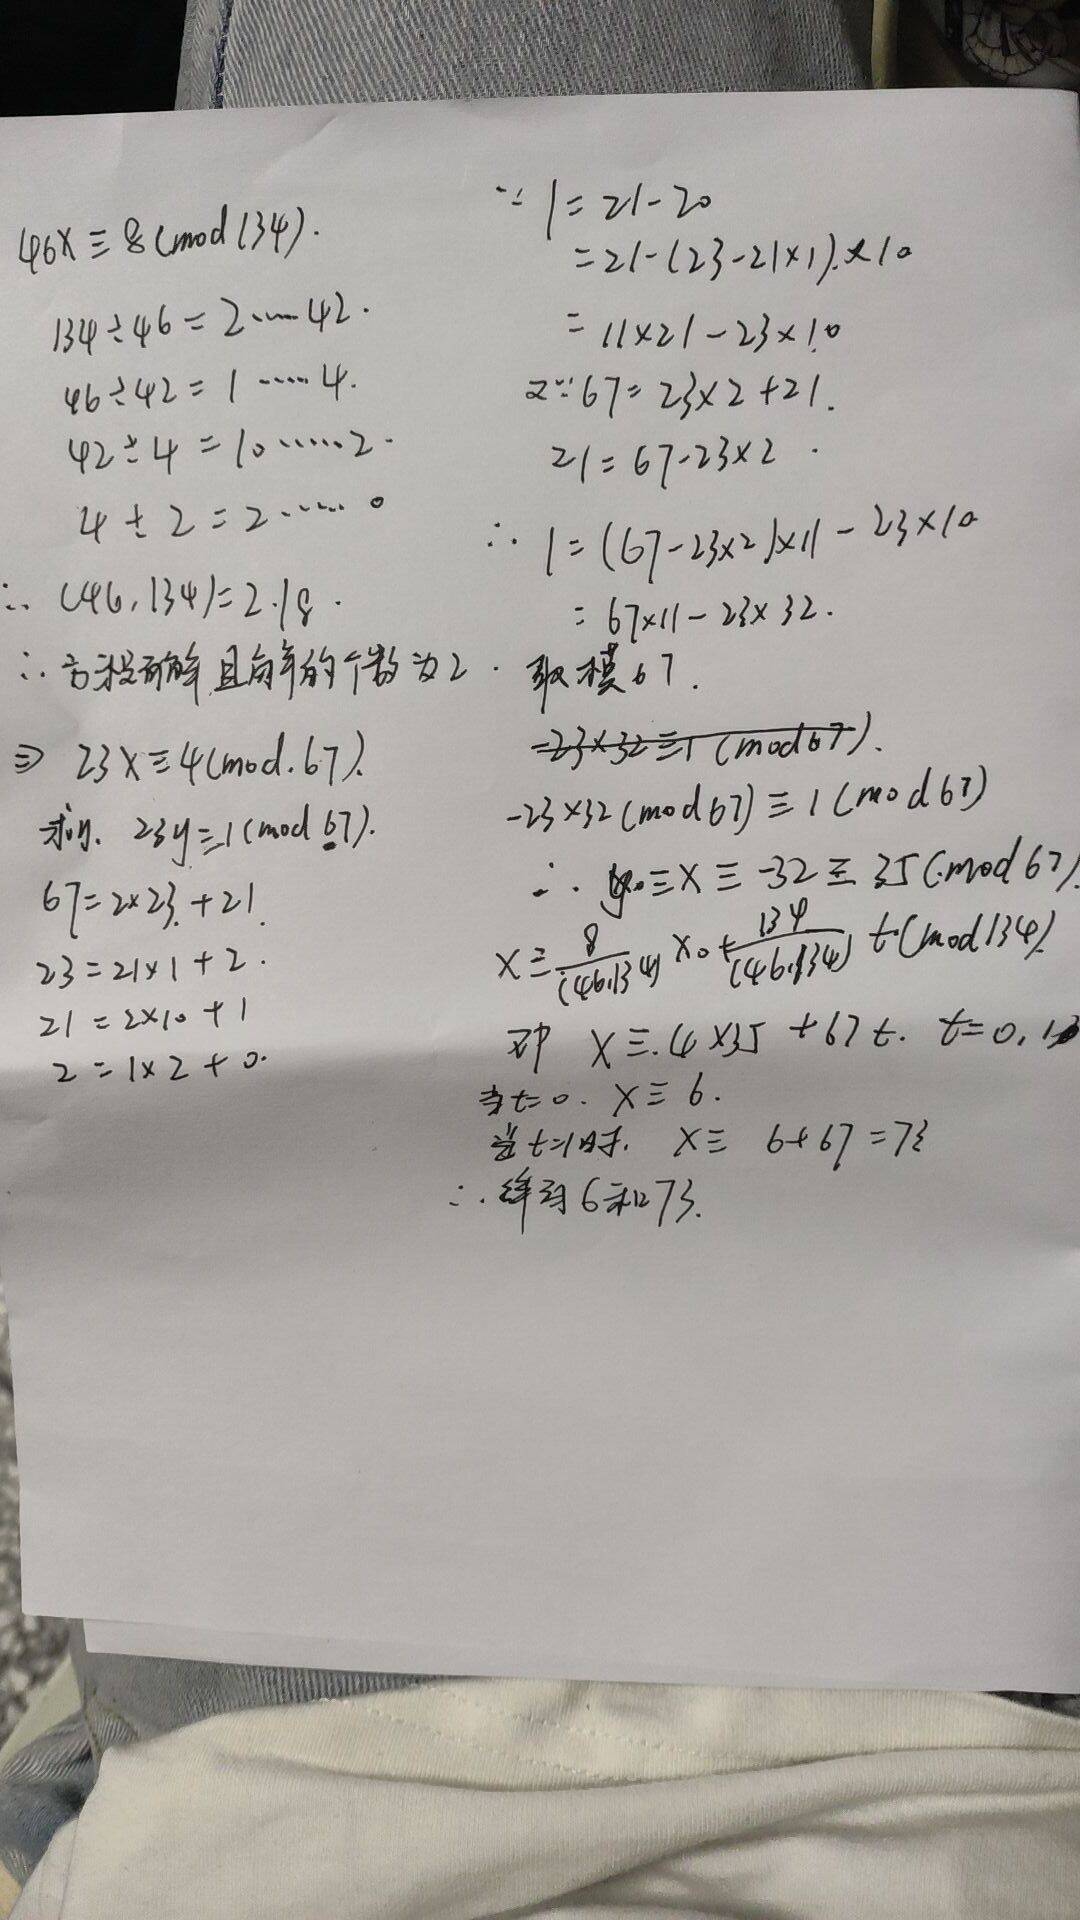 46x ≡ 8 (mod 134).
134÷46 = 2 ······ 42.
46÷42 = 1 ······ 4.
42÷4 = 10 ······ 2.
4÷2 = 2 ······ 0
∴ (46, 134) = 2 | 8.
∴ 方程有解且解的个数为2.
⇒ 23x ≡ 4 (mod. 67).
求y. 23y ≡ 1 (mod 67).
67 = 2×23 + 21
23 = 21×1 + 2.
21 = 2×10 + 1
2 = 1×2 + 0.
∵ 1 = 21 - 20
= 21 - (23 - 21×1) × 10
= 11×21 - 23×10
又∵ 67 = 23×2 + 21.
21 = 67 - 23×2.
∴ 1 = (67 - 23×2)×11 - 23×10
= 67×11 - 23×32.
取模67.
-23×32 ≡ 1 (mod 67).
-23×32 (mod 67) ≡ 1 (mod 67)
∴ ≡ x ≡ -32 ≡ 35 (mod 67).
x ≡ 8/(46,134) x0 + 134/(46,134) t (mod 134).
即 x ≡ 4×35 + 67t. t = 0, 1
当t=0. x ≡ 6.
当t=1时. x ≡ 6+67 = 73
∴ 解为6和73.